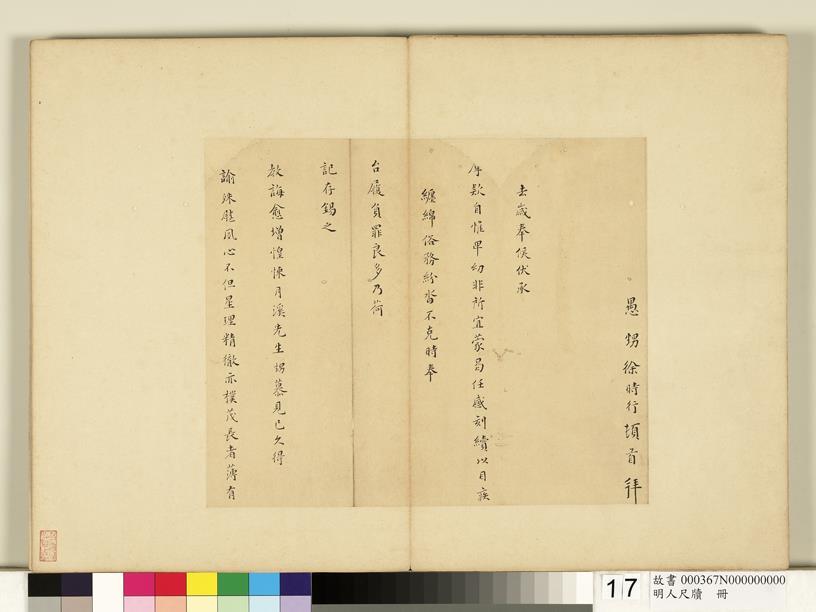 愚甥徐時行頓首拜
去歲奉候伏承
厚款自惟卑幼非所宜蒙曷任感刻續以目疾
纏綿俗務紛沓不克時奉
台履負罪良多乃荷
記存錫之
教誨愈增惶悚月溪先生甥慕見已久得
諭殊慰夙心不但星理精徹亦樸茂長者薄有
17
故書 000367N000000000
明人尺牘 冊